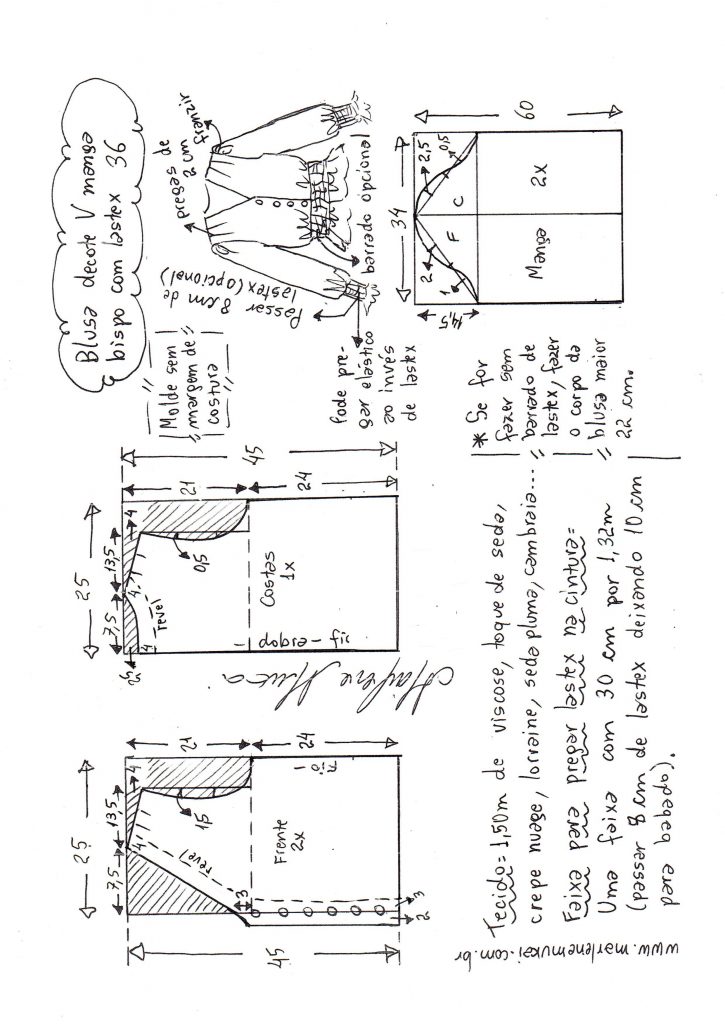 Blusa decote V manga
bispo com lastex 36
pregas de
2 cm
franzir
Passar
8 cm de
lastex (opcional)
barrado opcional
Pode pre-
gar elástico
ao invés
de lastex
Molde sem
margem de
costura
34
60
14,5
2,5
0,5
2
1
F
C
Manga
2x
25
7,5
13,5
4
4
1,5
revel
21
24
45
Frente
2x
fio
3
3
2
25
7,5
13,5
4
4
4
0,5
revel
21
24
45
Costas
1x
fio - dobra
Marlene Mukai
Tecido = 1,50m de viscose, toque de seda,
crepe nuage, lorraine, seda pluma, cambraia...
Faixa para pregar lastex na cintura =
Uma faixa com 30 cm por 1,32m
(passar 8 cm de lastex deixando 10 cm
para babado).
* Se for
fazer sem
barrado de
lastex, fazer
o corpo da
blusa maior
22 cm.
www.marlenemukai.com.br